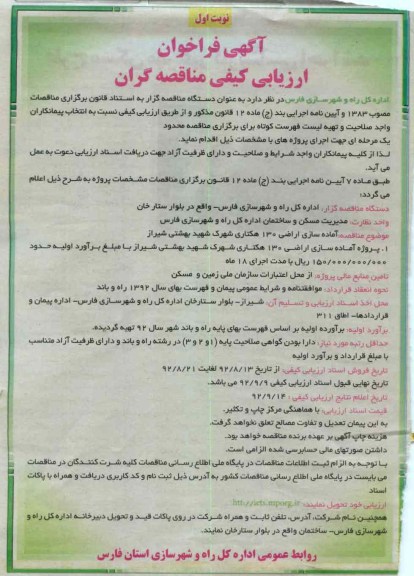 نوبت اول
آگهی فراخوان
ارزیابی کیفی مناقصه گران
اداره کل راه و شهرسازی فارس در نظر دارد به عنوان دستگاه مناقصه گزار به استناد قانون برگزاری مناقصات
مصوب ۱۳۸۳ و آیین نامه اجرایی بند (ج) ماده ۱۲ قانون مذکور و از طریق ارزیابی کیفی نسبت به انتخاب پیمانکاران
واجد صلاحیت و تهیه لیست فهرست کوتاه برای برگزاری مناقصه محدود
یک مرحله ای جهت اجرای پروژه های با مشخصات ذیل اقدام نماید.
لذا از کلیه پیمانکاران واجد شرایط و صلاحیت و دارای ظرفیت آزاد جهت دریافت اسناد ارزیابی دعوت به عمل
می آید.
طبق ماده ۷ آیین نامه اجرایی بند (ج) ماده ۱۲ قانون برگزاری مناقصات مشخصات پروژه به شرح ذیل اعلام
می گردد:
دستگاه مناقصه گزار: اداره کل راه و شهرسازی فارس- واقع در بلوار ستار خان
واحد نظارت: مدیریت مسکن و ساختمان اداره کل راه و شهرسازی فارس
موضوع مناقصه: آماده سازی اراضی ۱۳۰ هکتاری شهرک شهید بهشتی شیراز
۱. پروژه آماده سازی اراضی ۱۳۰ هکتاری شهرک شهید بهشتی شیراز با مبلغ برآورد اولیه حدود
۱۵۰/۰۰۰/۰۰۰/۰۰۰ ریال با مدت اجرای ۱۸ ماه
تامین منابع مالی پروژه: از محل اعتبارات سازمان ملی زمین و مسکن
نحوه انعقاد قرارداد: موافقتنامه و شرایط عمومی پیمان و فهرست بهای سال ۱۳۹۲ راه و باند
محل اخذ اسناد ارزیابی و تسلیم آن: شیراز- بلوار ستارخان اداره کل راه و شهرسازی فارس- اداره پیمان و
قراردادها- اطاق ۳۱۱
برآورد اولیه: برآورده اولیه بر اساس فهرست بهای پایه راه و باند شهر سال ۹۲ تهیه گردیده.
حداقل رتبه مورد نیاز: دارا بودن گواهی صلاحیت پایه (۱ و ۲ و ۳) در رشته راه و باند و دارای ظرفیت آزاد متناسب
با مبلغ قرارداد و برآورد اولیه
تاریخ فروش اسناد ارزیابی کیفی: از تاریخ ۹۲/۸/۱۳ لغایت ۹۲/۸/۲۱
تاریخ نهایی قبول اسناد ارزیابی کیفی ۹۲/۹/۹ می باشد.
تاریخ اعلام نتایج ارزیابی کیفی : ۹۲/۹/۱۴
قیمت اسناد ارزیابی: با هماهنگی مرکز چاپ و تکثیر.
به این پیمان تعدیل و تفاوت مصالح تعلق نخواهد گرفت.
هزینه چاپ آگهی بر عهده برنده مناقصه خواهد بود.
داشتن صورتهای مالی حسابرسی شده الزامی است.
با توجه به الزام ثبت اطلاعات مناقصات در پایگاه ملی اطلاع رسانی مناقصات کلیه شرکت کنندگان در مناقصات
می بایست در پایگاه ملی اطلاع رسانی مناقصات کشور به آدرس ذیل ثبت نام و کد کاربری دریافت و همراه با پاکات
اسناد
ارزیابی خود تحویل نمایند:
همچنین نام شرکت، آدرس، تلفن ثابت و همراه شرکت در روی پاکات قید و تحویل دبیرخانه اداره کل راه و
شهرسازی فارس- ساختمان واقع در بلوار ستارخان نمایند.
روابط عمومی اداره کل راه و شهرسازی استان فارس